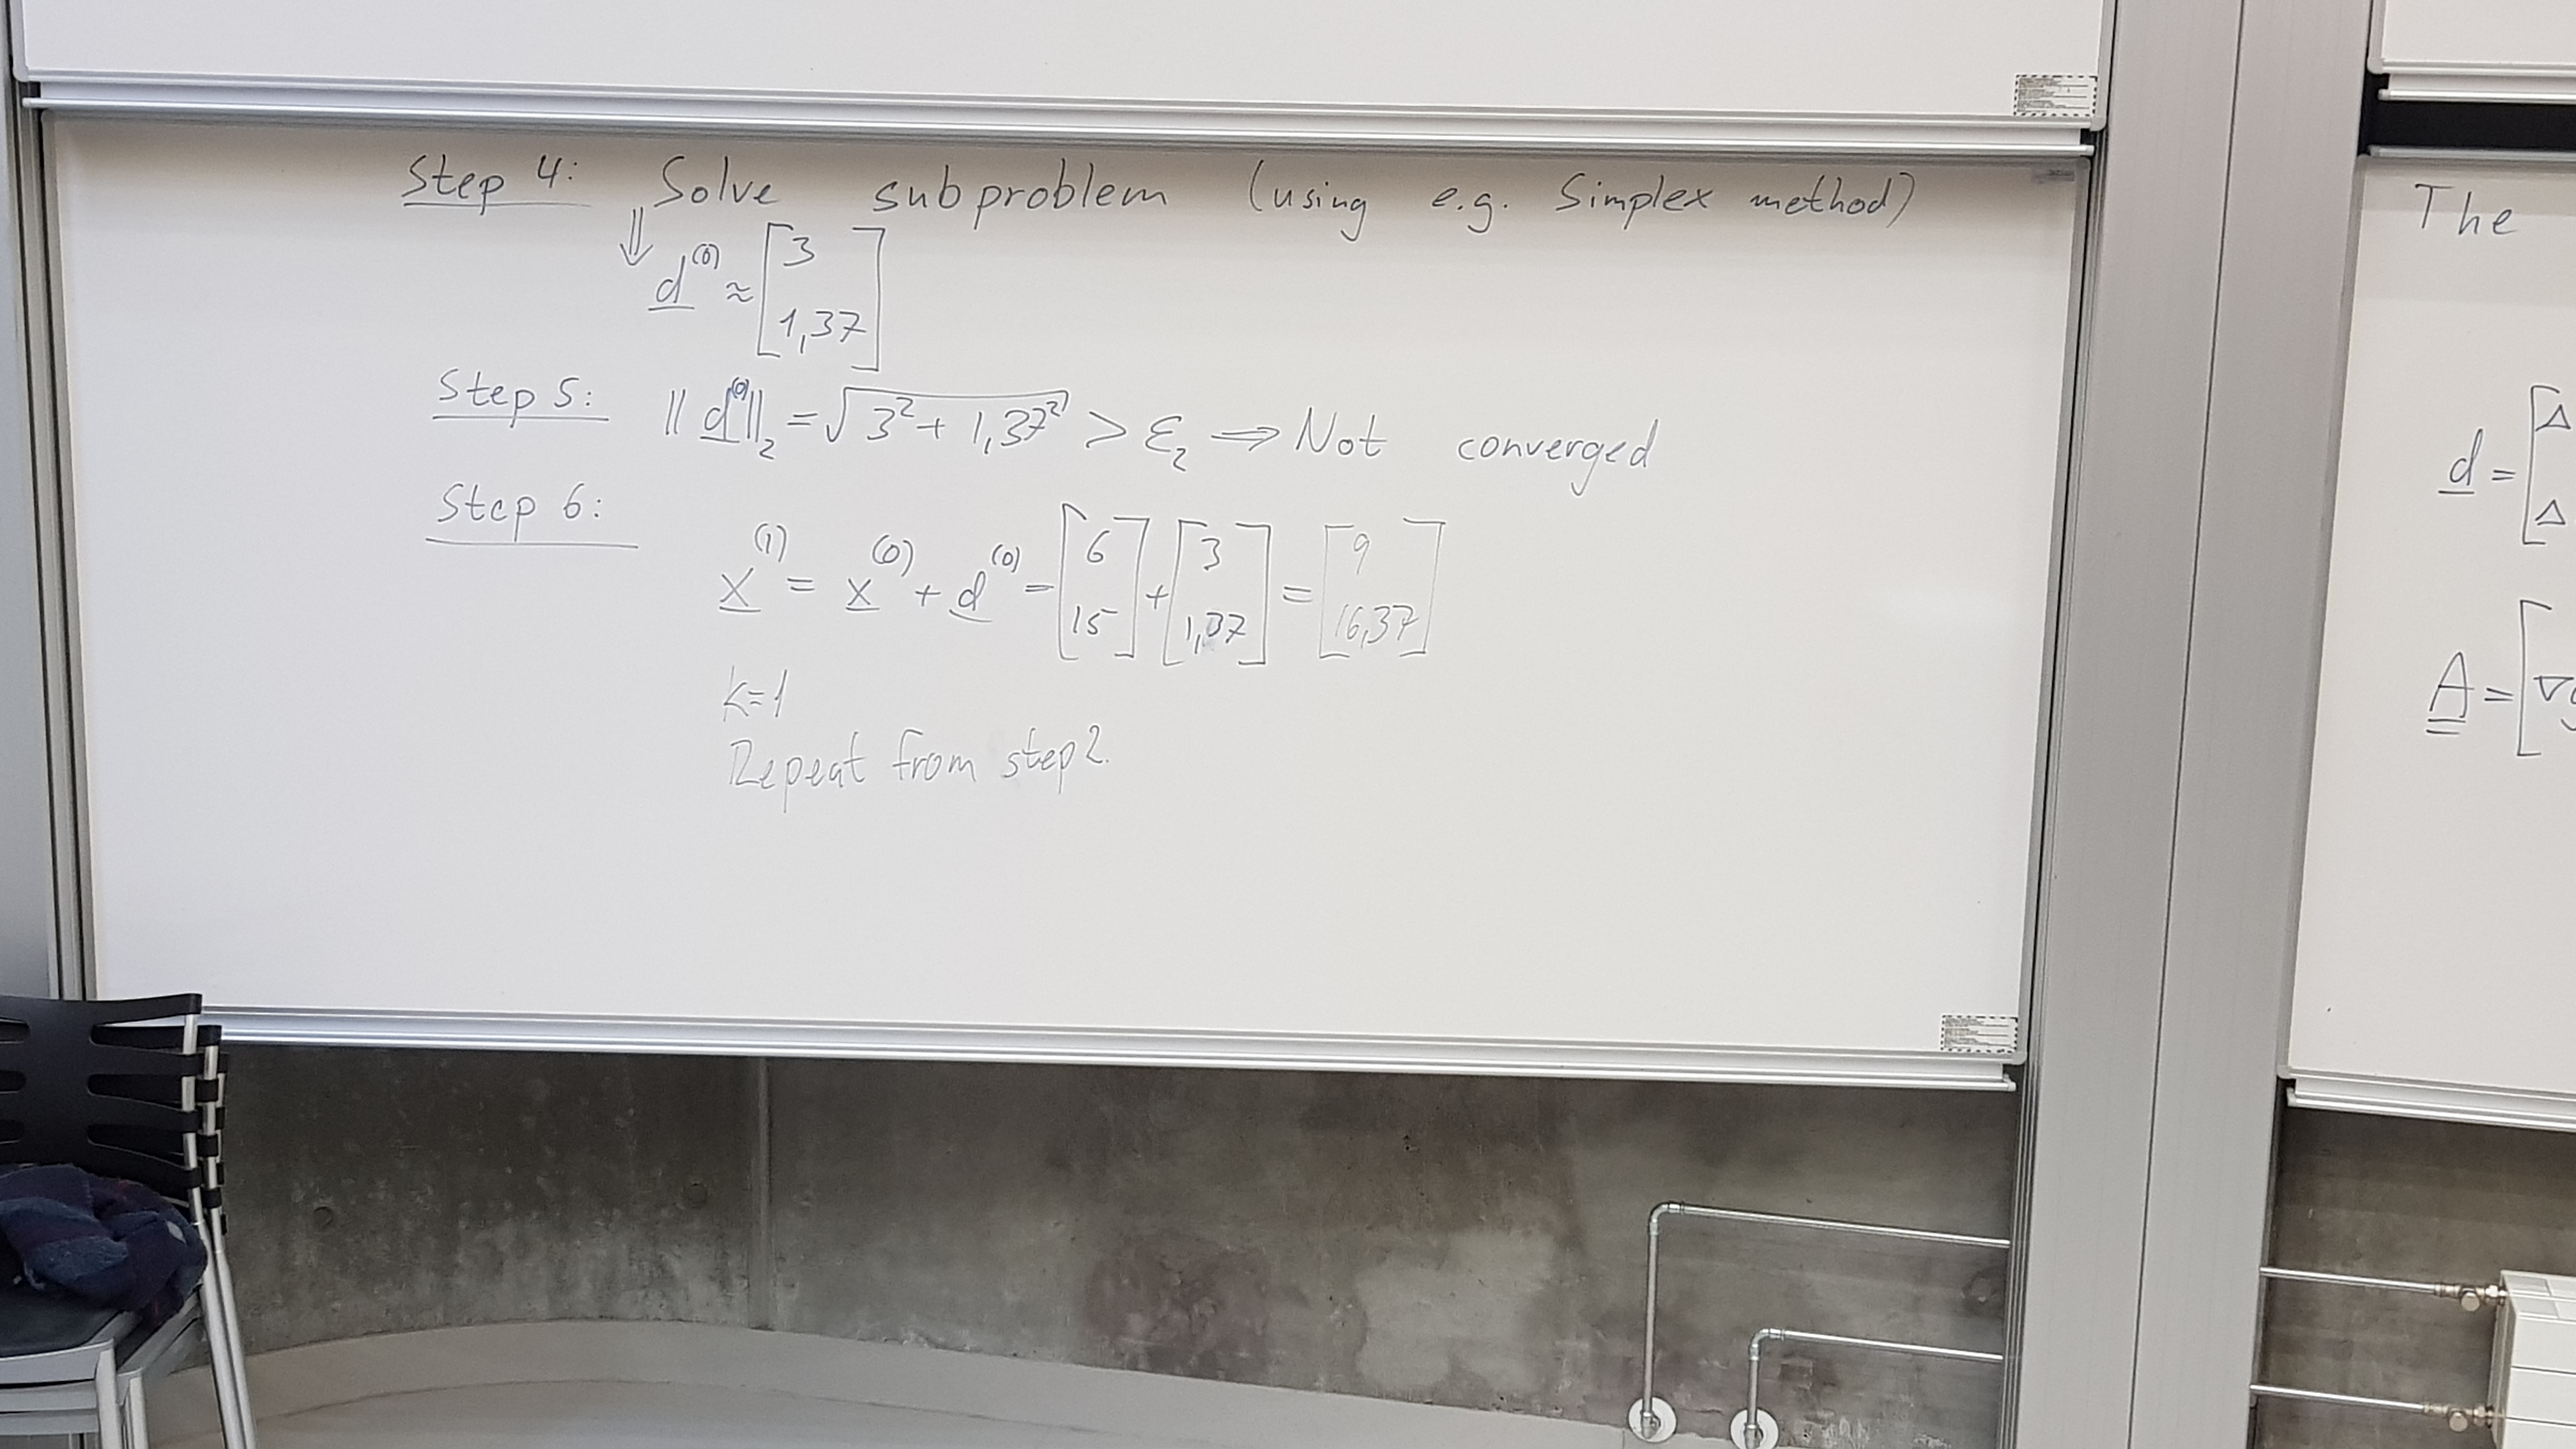 Step 4: Solve subproblem (using e.g. Simplex method)
⇓ d^(0) ≈ [3
1,37]
Step 5: ||d^(0)||_2 = √(3^2 + 1,37^2) > ε_2 ⇒ Not converged
Step 6:
x^(1) = x^(0) + d^(0) = [6 15] + [3 1,37] = [9 16,37]
k=1
Repeat from step 2.
The
d = [Δ
Δ
A = [∇g